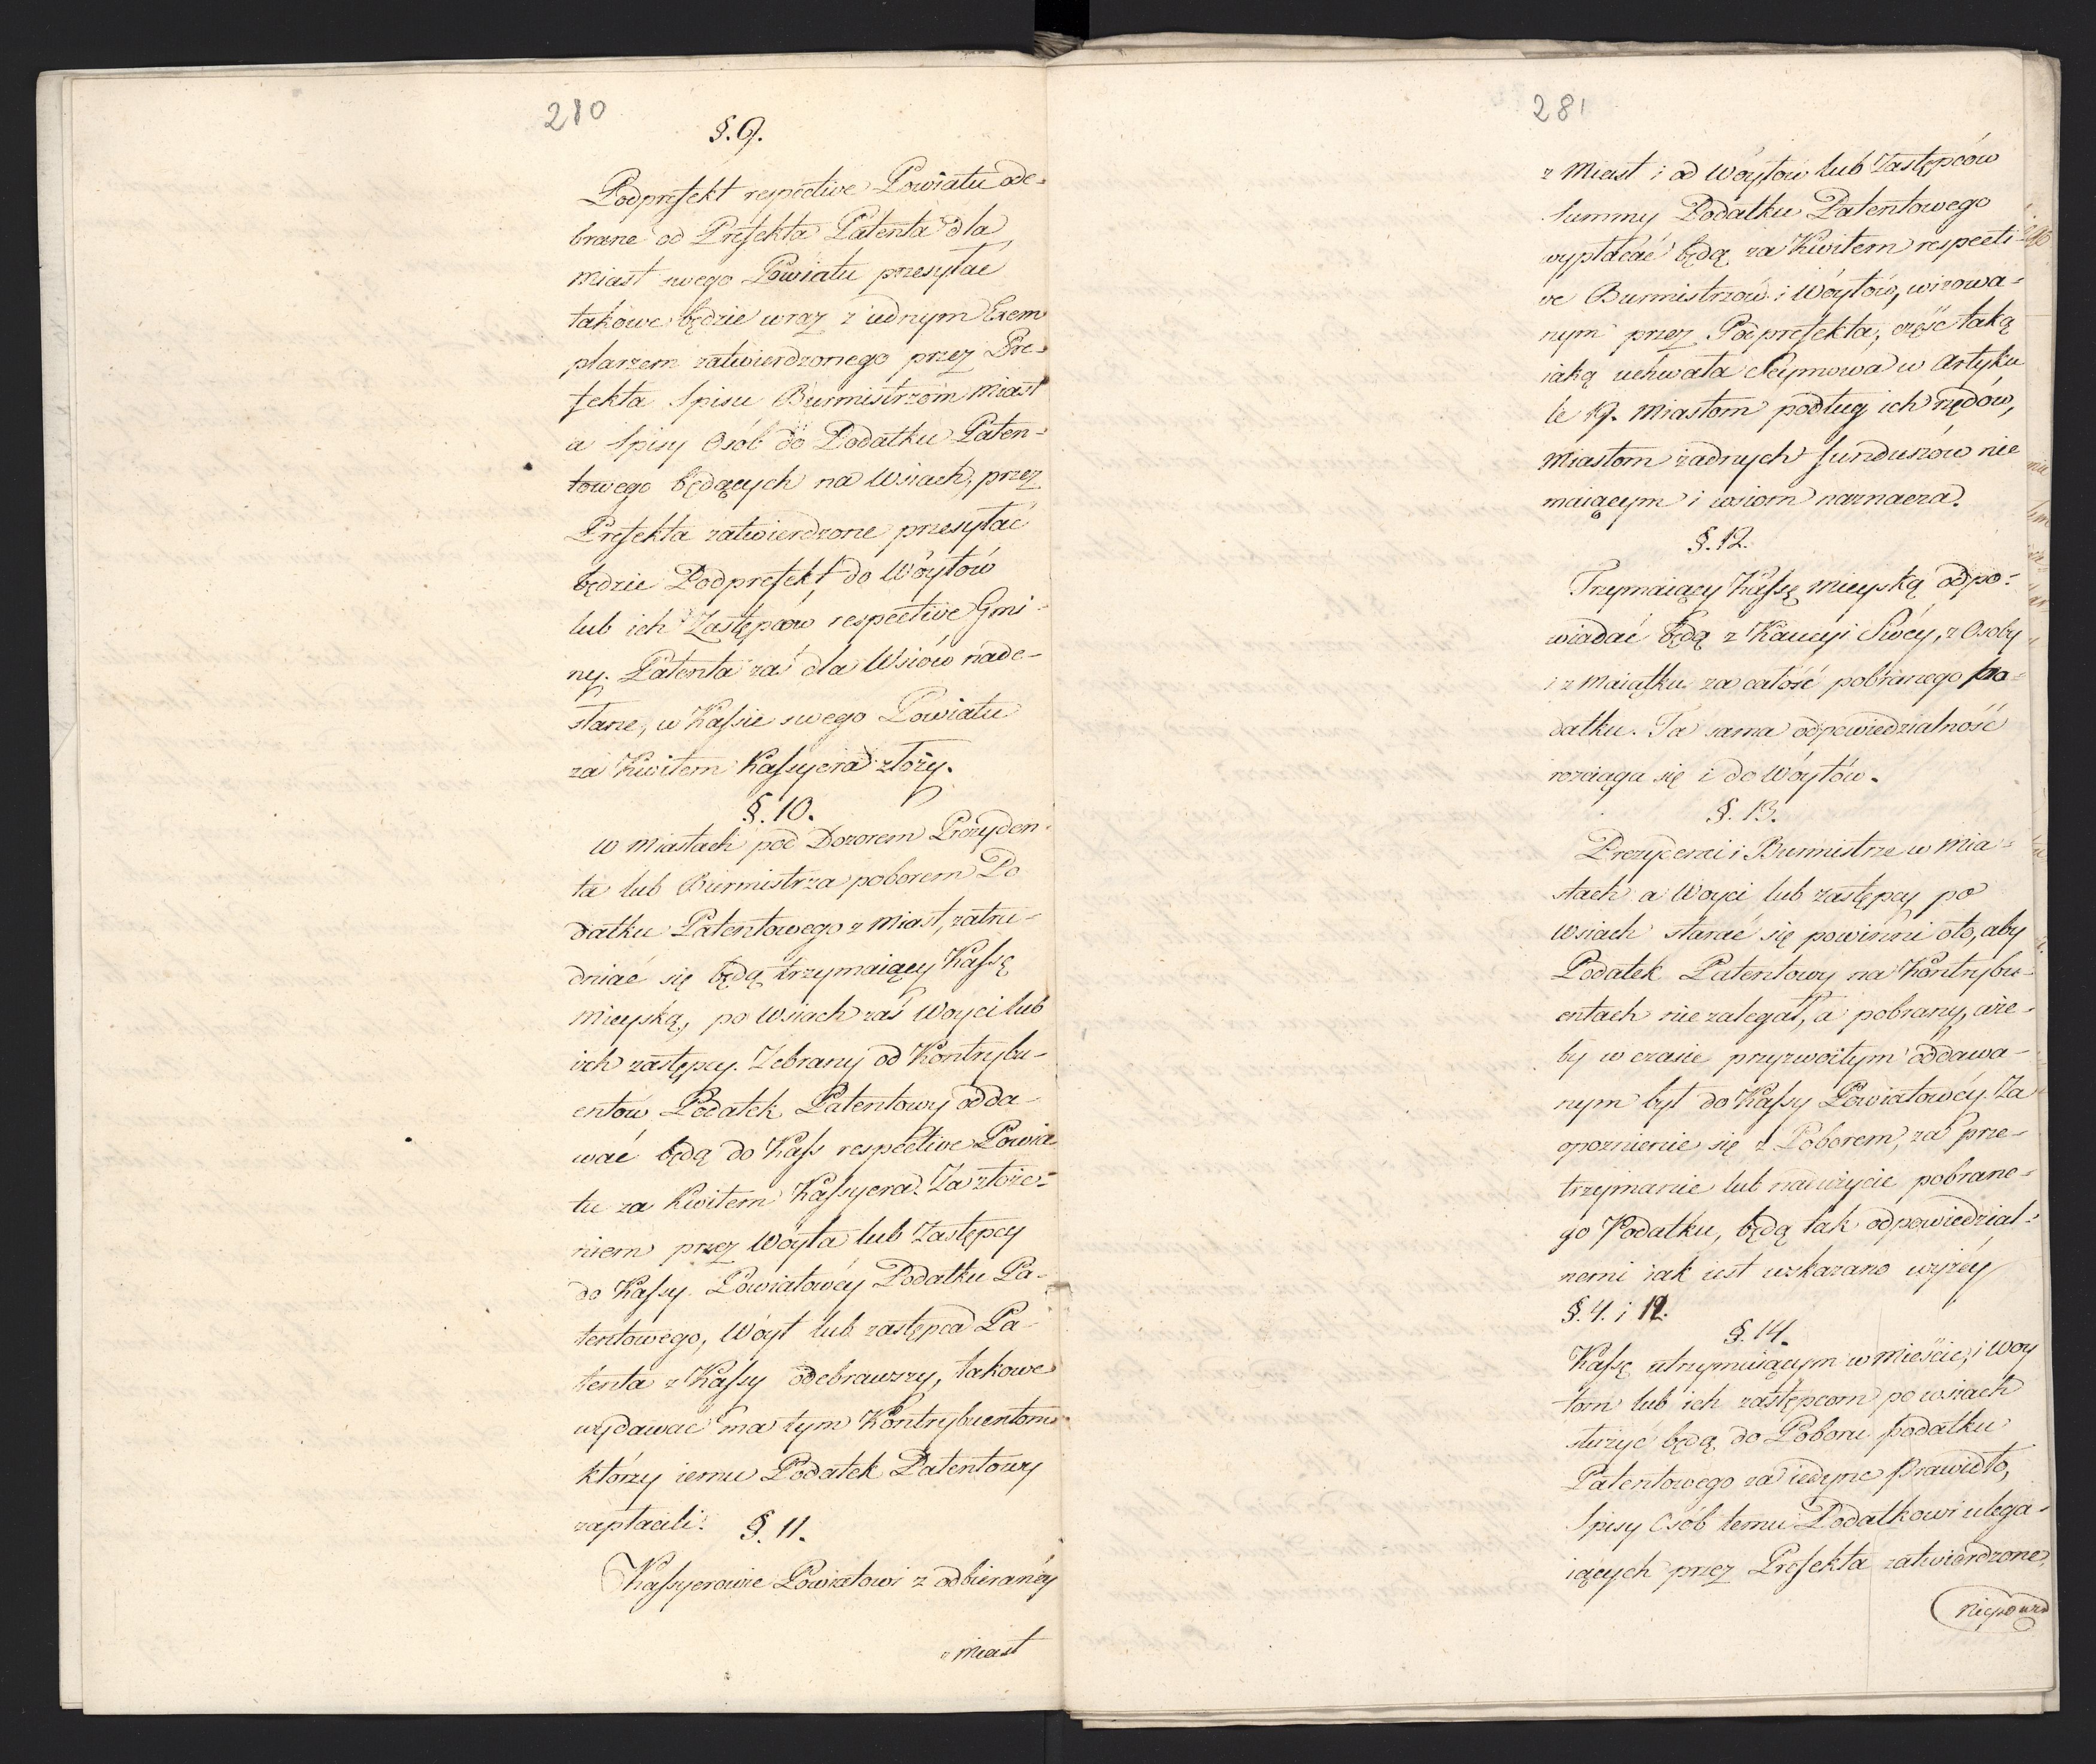 210
§. 9.
Podprefekt respective Powiatu ode-
brane od Prefekta Patenta dla
Miast swego Powiatu przesyłać
takowe będzie wraz z iednym Exem
plarzem zatwierdzonego przez Pre-
fekta Spisu Burmistrzom Miast
a Spisy Osób do Podatku Paten-
towego będących na Wsiach, przez
Prefekta zatwierdzone przesyłać
będzie Podprefekt do Wóytów
lub ich Zastępców respective Gmi-
ny. Patenta zaś dla Wsiów nade-
słane, w Kassie swego Powiatu
za Kwitem Kassyera złoży.
§. 10.
W Miastach pod Dozorem Prezyden-
ta lub Burmistrza poborem Po
datku Patentowego z Miast, zatru-
dniać się będą trzymaiący Kassę
Mieyską, po Wsiach zaś Woyci lub
ich zastępcy. Zebrany od Kontrybu-
entów Podatek Patentowy odda-
wać będą do Kass respective Powia
tu za Kwitem Kassyera. Za złoże-
niem przez Woyta lub Zastępcy
do Kassy Powiatowéy Podatku Pa-
tentowego, Wóyt lub zastępca Pa-
tenta z Kassy odebrawszy, takowe
wydawać ma tym Kontrybuentom
którzy iemu Podatek Patentowy
zapłacili.
§. 11.
Kassyerowie Powiatowi z odbieranéy
z Miast
281
z Miast i od Wóytów lub Zastępców
Summy Podatku Patentowego
wypłacać będą za Kwitem respecti-
ve Burmistrzów i Wóytów, wizowa-
nym przez Podprefekta, część taką
iaką uchwała Seymowa w Artyku
le 19. Miastom podług ich rzędów,
Miastom żadnych funduszów nie
maiącym i wsiom naznacza.
§. 12.
Trzymaiący Kassę Mieyską odpo-
wiadać będą z Kaucyi Swéy, z Osoby
i z Maiątku za całość pobranego po-
datku. Ta sama odpowiedzialność
rozciąga się i do Wóytów.
§. 13.
Prezydenci i Burmistrze w Mia-
stach a Woyci lub zastępcy po
Wsiach starać się powinni oto, aby
Podatek Patentowy na Kontrybu-
entach nie zalegał, a pobrany, aże-
by w czasie przyzwoitym oddawa-
nym był do Kassy Powiatowéy. Za
opoznienie się z Poborem, za prze-
trzymanie lub nadużycie pobrane-
go Podatku, będą tak odpowiedzial-
nemi iak iest wskazano wyżéy
§. 4. i 12.
§. 14.
Kassę utrzymuiącym w Mieście, i Woy
tom lub ich zastępcom po wsiach
służyć będą do Poboru podatku
Patentowego za iedyne Prawidło,
Spisy Osób temu Podatkowi ulega-
iących przez Prefekta zatwierdzone.